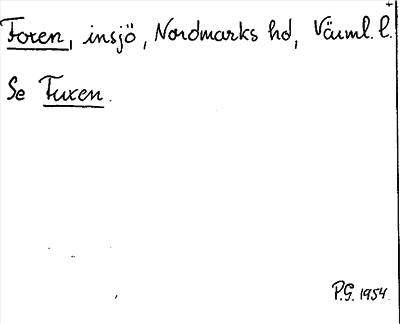 Foxen, insjö, Nordmarks hd, Värml. l.
Se Fuxen.
P.G. 1954.